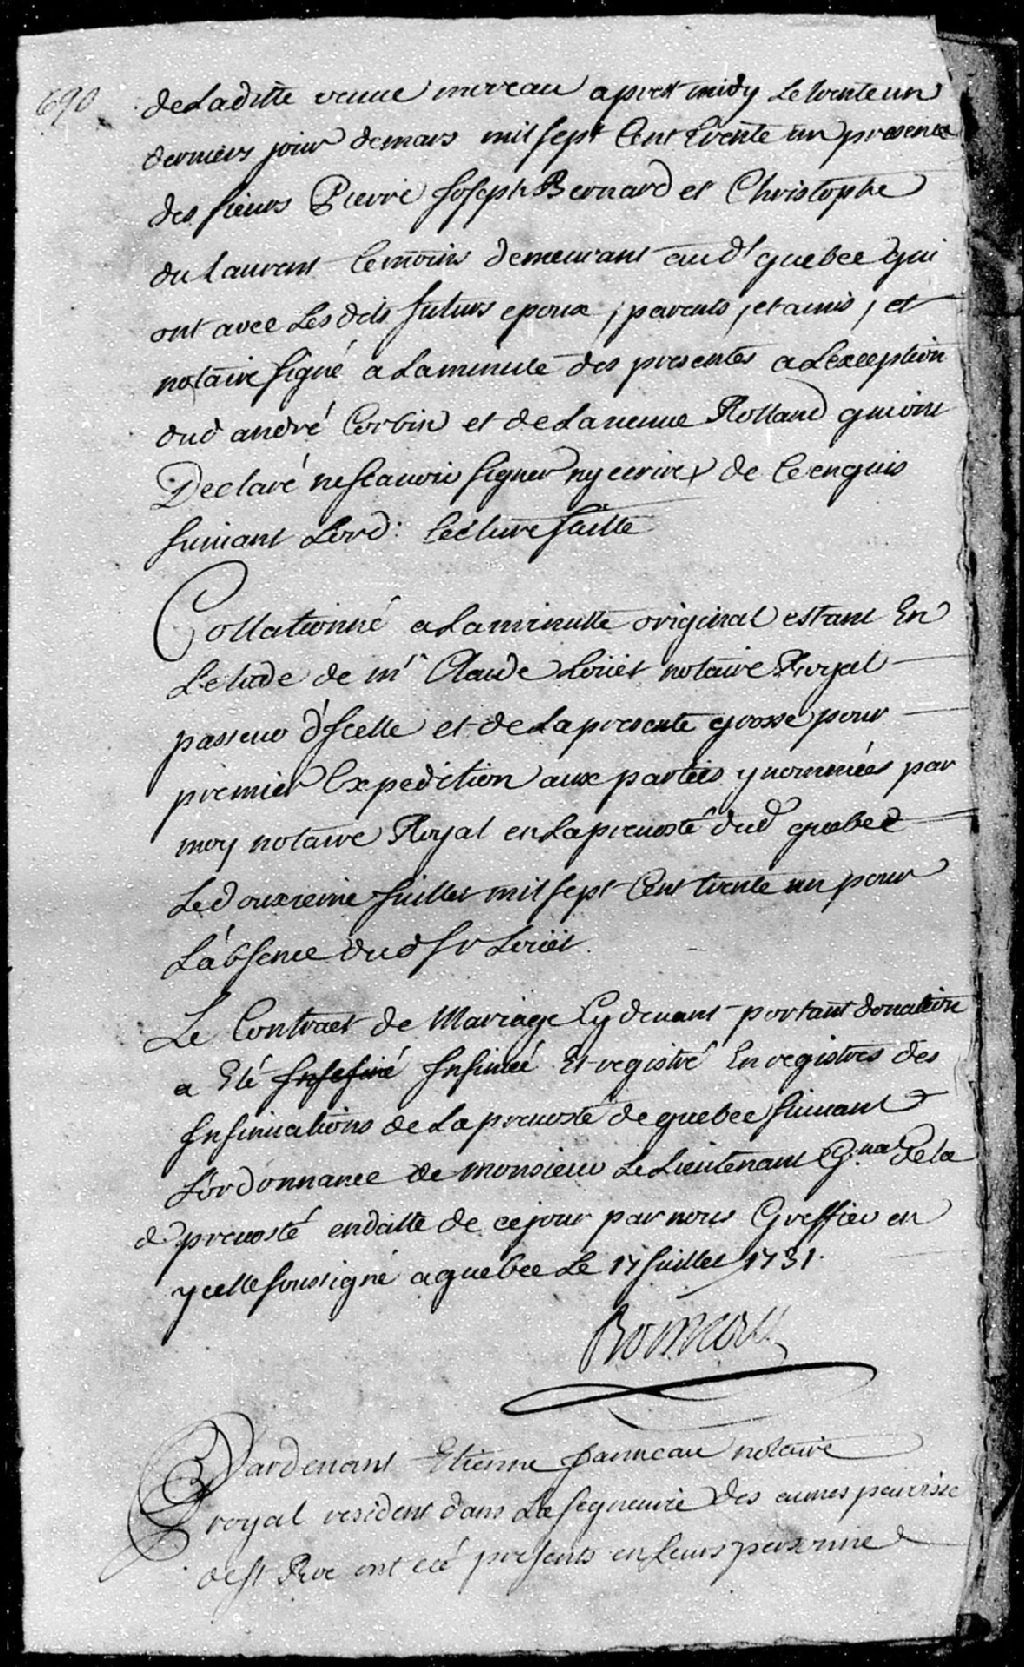 690
de Laditte veuve mireau apres midy Le trente un
derniers jour de mars mil sept Cent trente un presence
des sieurs Pierre Joseph Bernard et Christophe
du Laurent temoins demeurant aud quebec qui
ont avec Lesdts futurs epoux, parents, et amis, et
notaire signé a La minute des presentes a Lexception
dud andré Corbin et de La veuve Rolland qui ont
Declaré ne scavoir signer ny ecrire de ce enquis
suivant Lord: lecture faitte
Collationné a La minutte original estant En
Letude de mr Claude Loüet notaire Royal
passeur d'Icelle et de La presente grosse pour
premier Expedition aux parties y nommées par
moy notaire Royal en La prevosté dud quebec
Le douxieme Juillet mil sept Cent trente un pour
L'absence dud Sr Loüet.
Le Contract de Mariage Cy devant portant donation
a Eté Insinué Et registré En registres des
Insinuations de La prevosté de quebec suivant
L'ordonnance de Monsieur Le Lieutenant Gnal de la
d prevosté en datte de ce jour par nous Greffier en
ycelle soussigné a quebec Le 17 Juillet 1731.
Boisseau
Pardevant Etienne Janneau notaire
royal resident dans La segneurie des aunes parrisse
de St Roc ont eté presents en Leurs personne